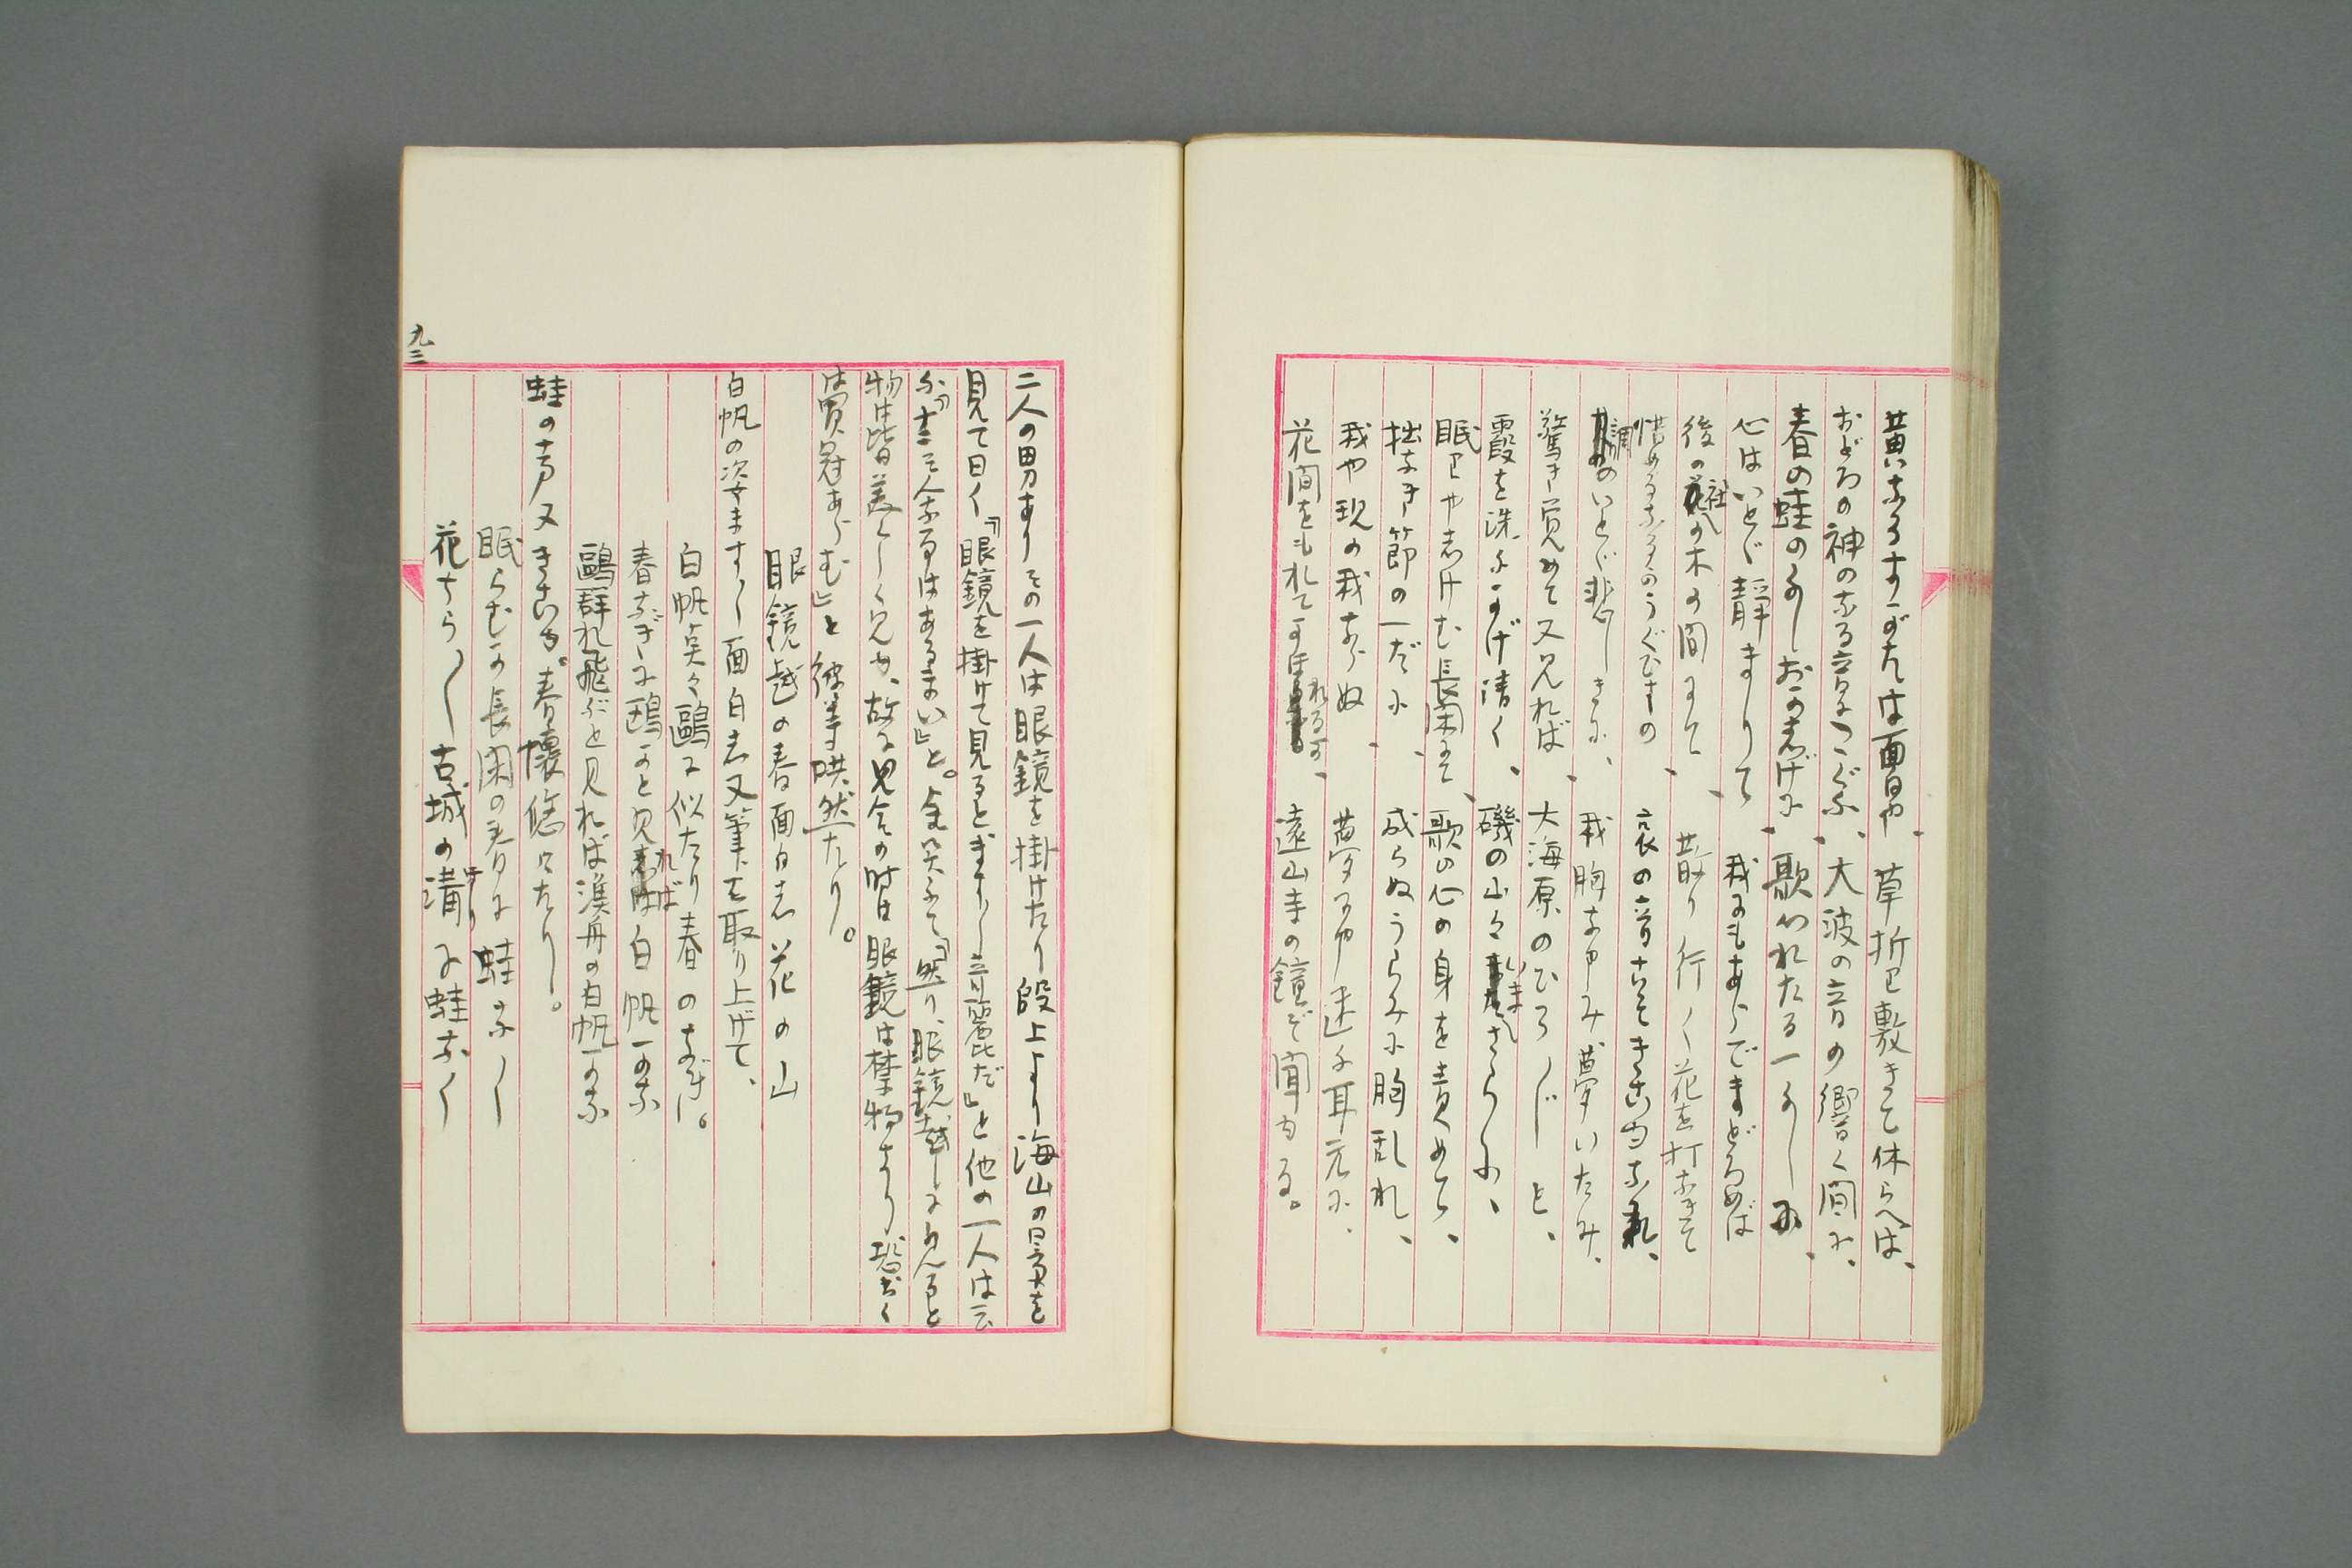 黄なるすがたは面白や、草折り敷きて休らへば、
おどろの神のなる音につぐふ、大波の音の響く間に、
春の蛙のよしおかしげに、歌はれたる一よしに、
心はいとど静まりて、我にもあらでまどろめば
後の社の木の間にて、散り行く花を打なきて
惜めるなるのうぐひすの、哀の音こそきこゆなれ、
調のいとど悲しきに、我胸なやみ夢いたみ、
驚き覚めて又見れば、大海原のひろ〴〵と、
霞を洩にかげ清く、磯の山々いまさらに、
眠りやしけむ長閑にて、歌の心の身を責めて、
拙なき節の一だに、成らぬうらみに胸乱れ、
我や現の我ならぬ、夢にや迷ふ耳元に、
花間をもれてかほれるか、遠山寺の鐘ぞ聞ゆる。
二人の男ありその一人は眼鏡を掛けたり殿上より海山の景を
見て曰く『眼鏡を掛けて見るとます〳〵奇麗だ』と他の一人は云
ふ『そんなことはあるまい』と。余笑ふて『然り、眼鏡越しに見ると
物は皆美しく見ゆ、故に見合の時は眼鏡は禁物なり恐らく
は買冠あらむ』と彼等哄然たり。
眼鏡越の春面白し花の山
白帆の姿ます〳〵面白し又筆を取り上げて、
白帆点々鷗に似たり春のなぎ。
春なぎに鷗かと見れば白帆かな
鷗群れ飛ぶと見れば漁舟の白帆かな
蛙の声又きこゆ。春懐悠々たり。
眠らむか長閑の春に蛙なく
花ちら〳〵古城の溝に蛙なく
九三